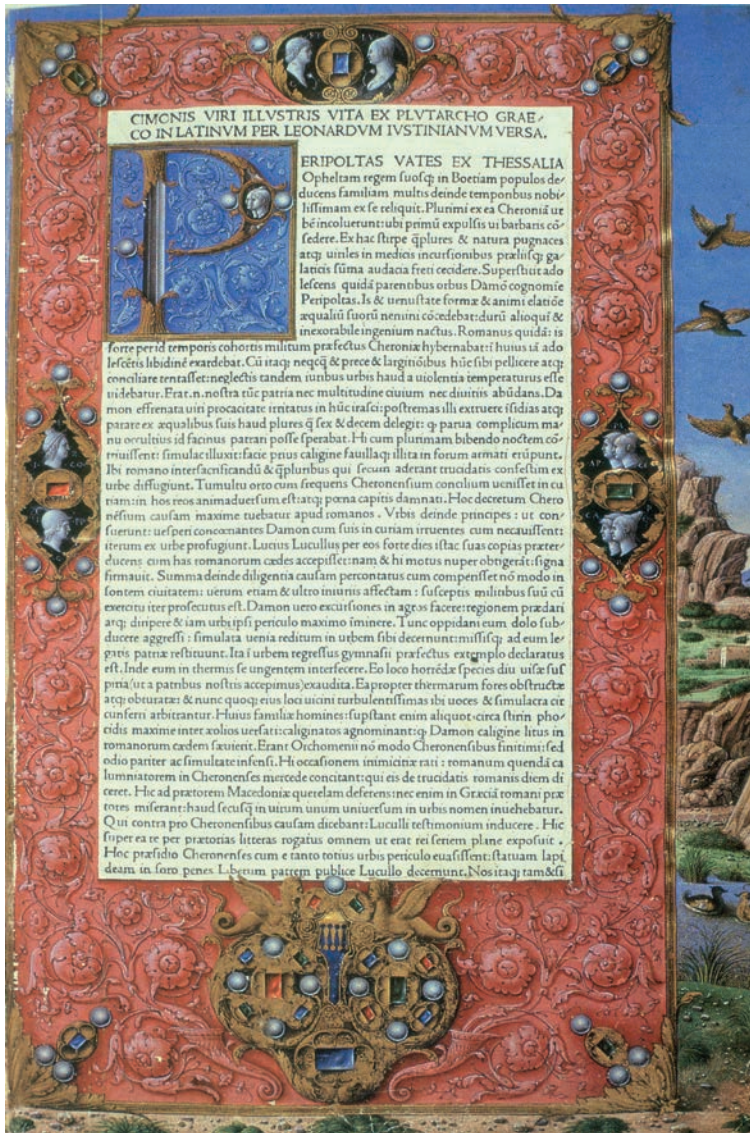 CIMONIS VIRI ILLVSTRIS VITA EX PLVTARCHO GRAE-
CO IN LATINVM PER LEONARDVM IVSTINIANVM VERSA.
PERIPOLTAS VATES EX THESSALIA
Opheltam regem suosq; in Boetiam populos de-
ducens familiam multis deinde temporibus nobi-
lissimam ex se reliquit. Plurimi ex ea Cheroniā ur
bē incoluerunt: ubi primū expulsis ui barbaris cō-
sedere. Ex hac stirpe q̄plures & natura pugnaces
atq; uiriles in medicis incursionibus præliisq; ga-
laticis sūma audacia freti cecidere. Superstuit ado
lescens quidā parentibus orbus Dāmō cognomīe
Peripoltas. Is & uenustate formæ & animi elatiōe
æqualiū suorū nemini cōcedebat: durū alioqui &
inexorabile ingenium nactus. Romanus quidā: is
forte per id temporis cohortis militum præfectus Cheroniæ hybernabat: ī huius iā ado
lescētis libidinē exardebat. Cū itaq; neqcq̄ & prece & largitiōibus hūc sibi pellicere atq;
conciliare tentasset: neglectis tandem iuribus urbis haud a uiolentia temperaturus esse
uidebatur. Erat.n.nostra tūc patria nec multitudine ciuium nec diuitiis abūdans. Da
mon effrenata uiri procacitate irritatus in hūc irasci: postremas illi extruere īsidias atq;
parare ex æqualibus suis haud plures q̄ sex & decem delegit: q; parua complicum ma-
nu occultius id facinus patrari posse sperabat. Hi cum plurimam bibendo noctem cō-
triuissent: simulac illuxit: facie prius caligine fauillaq; illita in forum armati erūpunt.
Ibi romano inter sacrificandū & q̄pluribus qui secum aderant trucidatis confestim ex
urbe diffugiunt. Tumultu orto cum frequens Cheronensium concilium uenisset in cu
riam: in hos reos animaduersum est: atq; pœna capitis damnati. Hoc decretum Chero
nēsium causam maxime tuebatur apud romanos. Vrbis deinde principes: ut con-
sueuerunt: uesperi concœnantes Damon cum suis in curiam irruentes cum necauissent:
iterum ex urbe profugiunt. Lucius Lucullus per eos forte dies istac suas copias præter-
ducens cum has romanorum cædes accepisset: nam & hi motus nuper obtigerāt: signa
firmauit. Summa deinde diligentia causam percontatus cum compensset nō modo in
sontem ciuitatem: uerum etiam & ultro iniuriis affectam: susceptis militibus suū cū
exercitu iter prosecutus est. Damon uero excursiones in agros facere: regionem prædari
atq; diripere & iam urbi ipsi periculo maximo īminere. Tunc oppidani eum dolo sub-
ducere aggressi: simulata uenia reditum in urbem sibi decernunt: missisq; ad eum le-
gatis patriæ restituunt. Ita ī urbem regressus gymnasii præfectus extemplo declaratus
est. Inde eum in thermis se ungentem interfecere. Eo loco horrēdæ species diu uisæ sus
piria (ut a patribus nostris accepimus) exaudita. Ea propter thermarum fores obstructæ
atq; obturatæ: & nunc quoq; eius loci uicini turbulentissimas ibi uoces & simulacra cir
cunferri arbitrantur. Huius familiæ homines: supstant enim aliquot: circa stirin pho-
cidis maxime inter æolios uersati: caliginatos agnominant: q; Damon caligine litus in
romanorum cædem sæuierit. Erant Orchomeni nō modo Cheronensibus finitimi: sed
odio pariter ac simultate infensi. Hi occasionem inimicitiæ rati: romanum quendā ca
lumniatorem in Cheronenses mercede concitant: qui eis de trucidatis romanis diem di
ceret. Hic ad prætorem Macedoniæ querelam deferens: nec enim in Græciā romani præ
tores miserant: haud secusq̄ in uirum unum uniuersum in urbis nomen inuehebatur.
Qui contra pro Cheronensibus causam dicebant: Luculli testimonium inducere. Hic
super ea re per prætorias litteras rogatus omnem ut erat rei seriem plane exposuit.
Hoc præsidio Cheronenses cum e tanto totius urbis periculo euasissent: statuam lapi
deam in foro penes Liberum patrem publice Lucullo decernunt. Nos itaq; tam & si